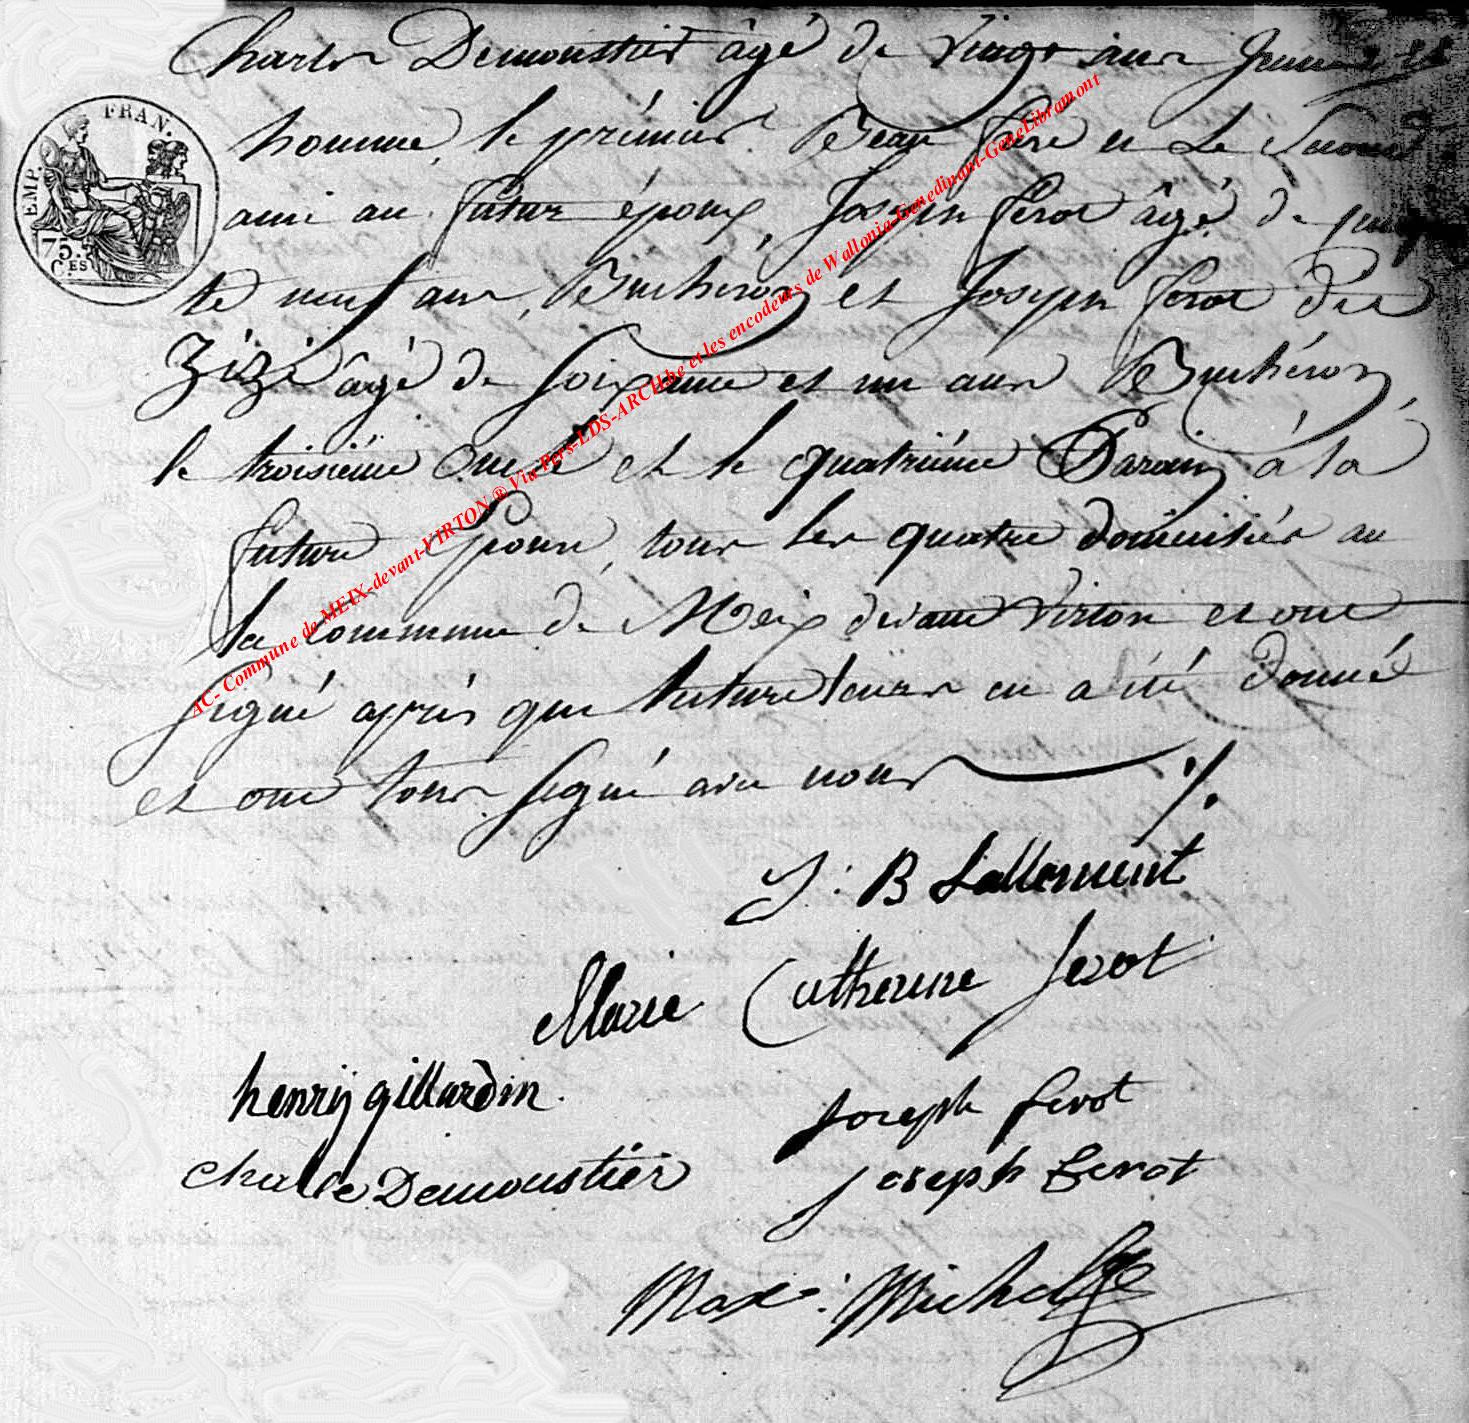 Charles Demoustier âgé de vingt ans jeune
homme, le prémier Beau frere et Le Second
ami au futur époux, Joseph ferot âgé de
te neuf ans, Bucheron et Joseph ferot dit
Zizi âgé de soixante et un ans Buchéron
le troisiéme Oncle et le quatriéme Parain à la
future Epouse, tous les quatre domiciliés au
la commune de Meix devant Virton et ont
signé après que lecture leurs en a été donné
et ont tous signé avec nous ./.
FRAN.
EMP.
75.
CES
AC- Commune de MEIX-devant-VIRTON ® Via Pers-LDS-ARCH.be et les encodeurs de Wallonia-Genedinant-GeneLibramont
J: B Lallement
Marie Catherine ferot
henrÿ gillardin.
Joseph ferot
Charle Demoustier
Joseph ferot
Max: Michel